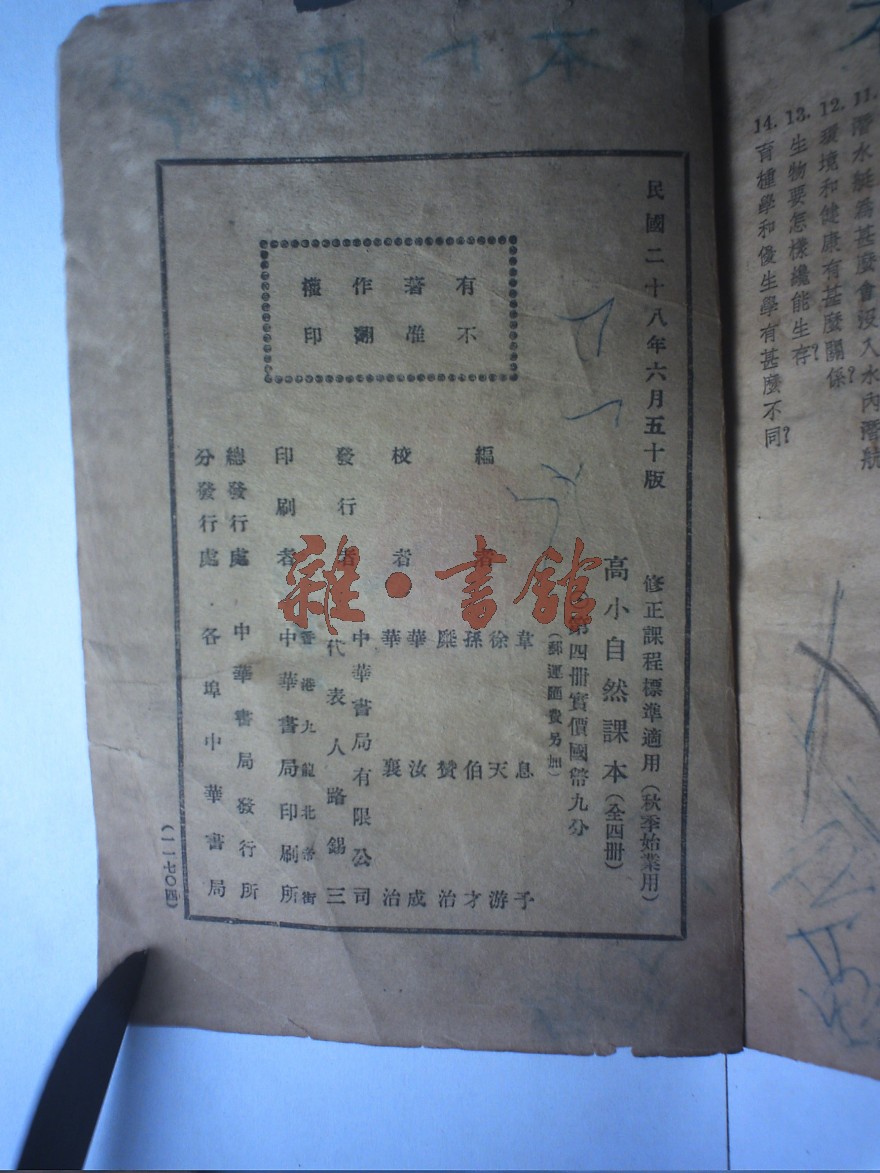 11. 潛水艇爲甚麼會沒入水內潛航
12. 環境和健康有甚麼關係?
13. 生物要怎樣纔能生存?
14. 育種學和優生學有甚麼不同?
民國二十八年六月五十版
有著作權
不准翻印
修正課程標準適用(秋季始業用)
高小自然課本(全四册)
第四册實價國幣九分
(郵運匯費另加)
編者
韋息予
徐天游
孫伯才
糜贊治
校者
華汝成
華襄治
發行者
中華書局有限公司
代表人路錫三
印刷者
香港九龍北帝街
中華書局印刷所
總發行處 中華書局發行所
分發行處 各埠中華書局
(一一七〇四)
雜·書館